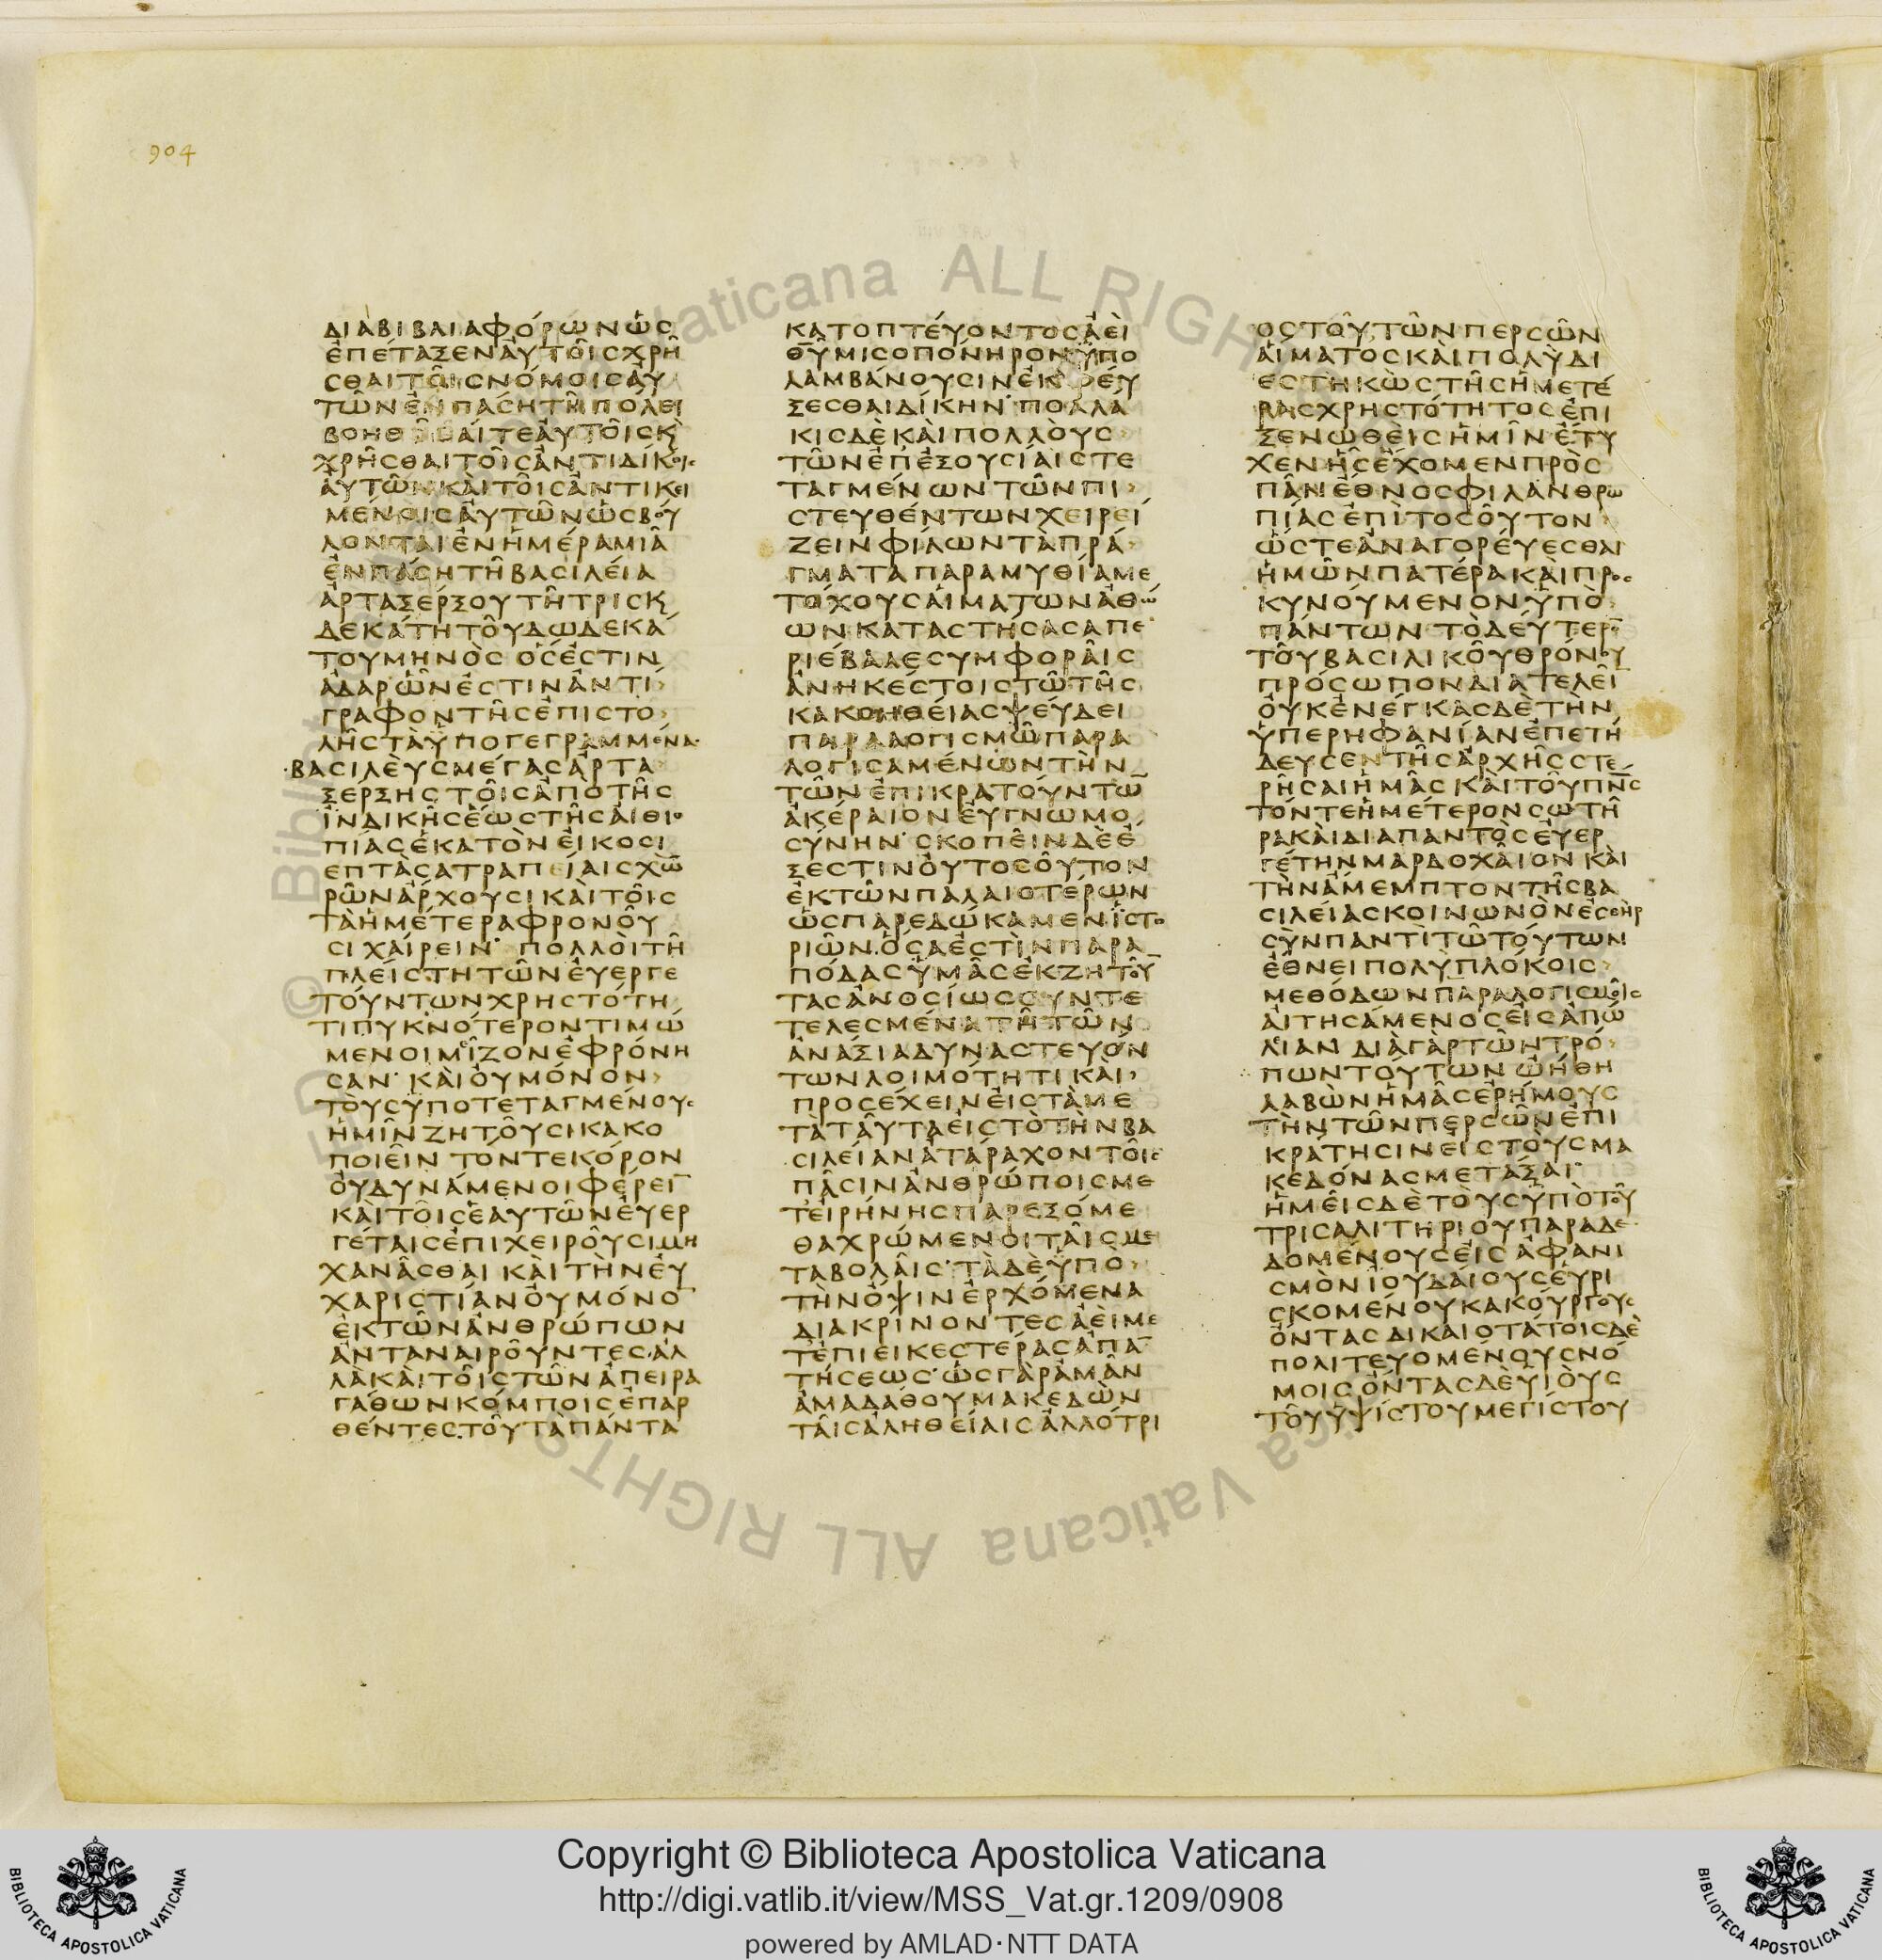 904
ΔΙΑΒΙΒΛΙΑΦΟΡΩΝΩϹ
ΕΠΕΤΑΞΕΝΑΥΤΟΙϹΧΡΗ
ϹΘΑΙΤΟΙϹΝΟΜΟΙϹΑΥ
ΤΩΝΕΝΠΑϹΗΤΗΠΟΛΕΙ
ΒΟΗΘΗϹΑΙΤΕΑΥΤΟΙϹΚ
ΧΡΗϹΘΑΙΤΟΙϹΑΝΤΙΔΙΚΟΙϹ
ΑΥΤΩΝΚΑΙΤΟΙϹΑΝΤΙΚΕΙ
ΜΕΝΟΙϹΑΥΤΩΝΩϹΒΟΥ
ΛΟΝΤΑΙΕΝΗΜΕΡΑΜΙΑ
ΕΝΠΑϹΗΤΗΒΑϹΙΛΕΙΑ
ΑΡΤΑΞΕΡΞΟΥΤΗΤΡΙϹΚ
ΔΕΚΑΤΗΤΟΥΔΩΔΕΚΑ
ΤΟΥΜΗΝΟϹΟϹΕϹΤΙΝ
ΑΔΑΡΩΝΕϹΤΙΝΑΝΤΙ
ΓΡΑΦΟΝΤΗϹΕΠΙϹΤΟ
ΛΗϹΤΑΥΠΟΓΕΓΡΑΜΜΕΝΑ
ΒΑϹΙΛΕΥϹΜΕΓΑϹΑΡΤΑ
ΞΕΡΞΗϹΤΟΙϹΑΠΟΤΗϹ
ΙΝΔΙΚΗϹΕΩϹΤΗϹΑΙΘΙΟ
ΠΙΑϹΕΚΑΤΟΝΕΙΚΟϹΙ
ΕΠΤΑϹΑΤΡΑΠΕΙΑΙϹΧΩ
ΡΩΝΑΡΧΟΥϹΙΚΑΙΤΟΙϹ
ΤΑΗΜΕΤΕΡΑΦΡΟΝΟΥ
ϹΙΧΑΙΡΕΙΝ· ΠΟΛΛΟΙΤΗ
ΠΛΕΙϹΤΗΤΩΝΕΥΕΡΓΕ
ΤΟΥΝΤΩΝΧΡΗϹΤΟΤΗ
ΤΙΠΥΚΝΟΤΕΡΟΝΤΙΜΩ
ΜΕΝΟΙΜΕΙΖΟΝΕΦΡΟΝΗ
ϹΑΝ· ΚΑΙΟΥΜΟΝΟΝ
ΤΟΥϹΥΠΟΤΕΤΑΓΜΕΝΟΥϹ
ΗΜΙΝΖΗΤΟΥϹΙΚΑΚΟ
ΠΟΙΕΙΝΤΟΝΤΕΚΟΡΟΝ
ΟΥΔΥΝΑΜΕΝΟΙΦΕΡΕΙ̅
ΚΑΙΤΟΙϹΕΑΥΤΩΝΕΥΕΡ
ΓΕΤΑΙϹΕΠΙΧΕΙΡΟΥϹΙΜΗ
ΧΑΝΑϹΘΑΙΚΑΙΤΗΝΕΥ
ΧΑΡΙϹΤΙΑΝΟΥΜΟΝΟ̅
ΕΚΤΩΝΑΝΘΡΩΠΩΝ
ΑΝΤΑΝΑΙΡΟΥΝΤΕϹΑΛ
ΛΑΚΑΙΤΟΙϹΤΩΝΑΠΕΙΡΑ
ΓΑΘΩΝΚΟΜΠΟΙϹΕΠΑΡ
ΘΕΝΤΕϹΤΟΥΤΑΠΑΝΤΑ
ΚΑΤΟΠΤΕΥΟΝΤΟϹΑΕΙ
Θ̅Υ̅ΜΙϹΟΠΟΝΗΡΟΝΥΠΟ
ΛΑΜΒΑΝΟΥϹΙΝΕΚΦΕΥ
ΞΕϹΘΑΙΔΙΚΗΝ· ΠΟΛΛΑ
ΚΙϹΔΕΚΑΙΠΟΛΛΟΥϹ
ΤΩΝΕΠΕΞΟΥϹΙΑΙϹΤΕ
ΤΑΓΜΕΝΩΝΤΩΝΠΙ
ϹΤΕΥΘΕΝΤΩΝΧΕΙΡΕΙ
ΖΕΙΝΦΙΛΩΝΤΑΠΡΑ
ΓΜΑΤΑΠΑΡΑΜΥΘΙΑΜΕ
ΤΟΧΟΥϹΑΙΜΑΤΩΝΑΘΩ
ΩΝΚΑΤΑϹΤΗϹΑϹΑΠΕ
ΡΙΕΒΑΛΕϹΥΜΦΟΡΑΙϹ
ΑΝΗΚΕϹΤΟΙϹΤΩΤΗϹ
ΚΑΚΟΗΘΕΙΑϹΨΕΥΔΕΙ
ΠΑΡΑΛΟΓΙϹΜΩΠΑΡΑ
ΛΟΓΙϹΑΜΕΝΩΝΤΗΝ
ΤΩΝΕΠΙΚΡΑΤΟΥΝΤΩ̅
ΑΚΕΡΑΙΟΝΕΥΓΝΩΜΟ
ϹΥΝΗΝ· ϹΚΟΠΕΙΝΔΕΕ
ΞΕϹΤΙΝΟΥΤΟϹΟΥΤΟΝ
ΕΚΤΩΝΠΑΛΑΙΟΤΕΡΩΝ
ΩϹΠΑΡΕΔΩΚΑΜΕΝΙϹΤΟ
ΡΙΩΝ.ΟϹΑΕϹΤΙΝΠΑΡΑ
ΠΟΔΑϹΥΜΑϹΕΚΖΗΤΟΥ̅
ΤΑϹΑΝΟϹΙΩϹϹΥΝΤΕ
ΤΕΛΕϹΜΕΝΑΤΗΤΩΝ
ΑΝΑΞΙΑΔΥΝΑϹΤΕΥΟΝ
ΤΩΝΛΟΙΜΟΤΗΤΙΚΑΙ
ΠΡΟϹΕΧΕΙΝΕΙϹΤΑΜΕ
ΤΑΤΑΥΤΑΕΙϹΤΟΤΗΝΒΑ
ϹΙΛΕΙΑΝΑΤΑΡΑΧΟΝΤΟΙϹ
ΠΑϹΙΝΑΝΘΡΩΠΟΙϹΜΕ
ΤΕΙΡΗΝΗϹΠΑΡΕΞΟΜΕ
ΘΑΧΡΩΜΕΝΟΙΤΑΙϹΜΕ
ΤΑΒΟΛΑΙϹ· ΤΑΔΕΥΠΟ
ΤΗΝΟΨΙΝΕΡΧΟΜΕΝΑ
ΔΙΑΚΡΙΝΟΝΤΕϹΑΕΙΜΕ
ΤΕΠΙΕΙΚΕϹΤΕΡΑϹΑΠΑ̅
ΤΗϹΕΩϹ· ΩϹΓΑΡΑΜΑΝ
ΑΜΑΔΑΘΟΥΜΑΚΕΔΩΝ
ΤΑΙϹΑΛΗΘΕΙΑΙϹΑΛΛΟΤΡΙ
ΟϹΤΟΥΤΩΝΠΕΡϹΩΝ
ΑΙΜΑΤΟϹΚΑΙΠΟΛΥΔΙ
ΕϹΤΗΚΩϹΤΗϹΗΜΕΤΕ
ΡΑϹΧΡΗϹΤΟΤΗΤΟϹΕΠΙ
ΞΕΝΩΘΕΙϹΗΜΙΝΕΤΥ
ΧΕΝΗϹΕΧΟΜΕΝΠΡΟϹ
ΠΑΝΕΘΝΟϹΦΙΛΑΝΘΡΩ
ΠΙΑϹΕΠΙΤΟϹΟΥΤΟΝ
ΩϹΤΕΑΝΑΓΟΡΕΥΕϹΘΑΙ
ΗΜΩΝΠΑΤΕΡΑΚΑΙΠΡΟϹ
ΚΥΝΟΥΜΕΝΟΝΥΠΟ
ΠΑΝΤΩΝΤΟΔΕΥΤΕΡΟ̅
ΤΟΥΒΑϹΙΛΙΚΟΥΘΡΟΝΟΥ
ΠΡΟϹΩΠΟΝΔΙΑΤΕΛΕΙ̅
ΟΥΚΕΝΕΓΚΑϹΔΕΤΗΝ
ΥΠΕΡΗΦΑΝΙΑΝΕΠΕΤΗ
ΔΕΥϹΕΝΤΗϹΑΡΧΗϹϹΤΕ
ΡΗϹΑΙΗΜΑϹΚΑΙΤΟΥΠΝ̅Ϲ̅
ΤΟΝΤΕΗΜΕΤΕΡΟΝϹΩΤΗ
ΡΑΚΑΙΔΙΑΠΑΝΤΟϹΕΥΕΡ
ΓΕΤΗΝΜΑΡΔΟΧΑΙΟΝΚΑΙ
ΤΗΝΑΜΕΜΠΤΟΝΤΗϹΒΑ
ϹΙΛΕΙΑϹΚΟΙΝΩΝΟΝΕϹΘΗΡ
ϹΥΝΠΑΝΤΙΤΩΤΟΥΤΩΝ
ΕΘΝΕΙΠΟΛΥΠΛΟΚΟΙϹ
ΜΕΘΟΔΩΝΠΑΡΑΛΟΓΙϹΜΟΙϹ
ΑΙΤΗϹΑΜΕΝΟϹΕΙϹΑΠΩ
ΛΙΑΝΔΙΑΓΑΡΤΩΝΤΡΟ
ΠΩΝΤΟΥΤΩΝΩΗΘΗ
ΛΑΒΩΝΗΜΑϹΕΡΗΜΟΥϹ
ΤΗΝΤΩΝΠΕΡϹΩΝΕΠΙ
ΚΡΑΤΗϹΙΝΕΙϹΤΟΥϹΜΑ
ΚΕΔΟΝΑϹΜΕΤΑΞΑΙ·
ΗΜΕΙϹΔΕΤΟΥϹΥΠΟΤΟΥ
ΤΡΙϹΑΛΙΤΗΡΙΟΥΠΑΡΑΔΕ
ΔΟΜΕΝΟΥϹΕΙϹΑΦΑΝΙ
ϹΜΟΝΙΟΥΔΑΙΟΥϹΕΥΡΙ
ϹΚΟΜΕΝΟΥΚΑΚΟΥΡΓΟΥϹ
ΟΝΤΑϹΔΙΚΑΙΟΤΑΤΟΙϹΔΕ
ΠΟΛΙΤΕΥΟΜΕΝΟΥϹΝΟ
ΜΟΙϹΟΝΤΑϹΔΕΥΙΟΥϹ
ΤΟΥΥΨΙϹΤΟΥΜΕΓΙϹΤΟΥ
© Bibli
Vaticana ALL RIGH
ica Vaticana ALL RIGHTS
Copyright © Biblioteca Apostolica Vaticana
http://digi.vatlib.it/view/MSS_Vat.gr.1209/0908
powered by AMLAD·NTT DATA
BIBLIOTECA APOSTOLICA VATICANA
BIBLIOTECA APOSTOLICA VATICANA